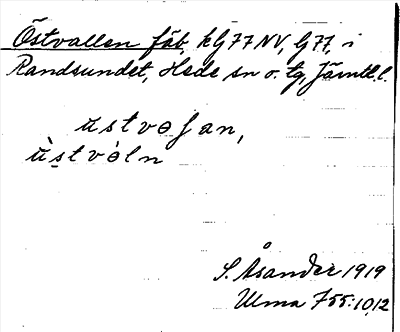 Östvallen fäb. kG77NV, G77, i
Randsundet, Hede sn o. tg, Jämtl. l.
ùstvàln
S. Åsander 1919
Ulma 755:10,12